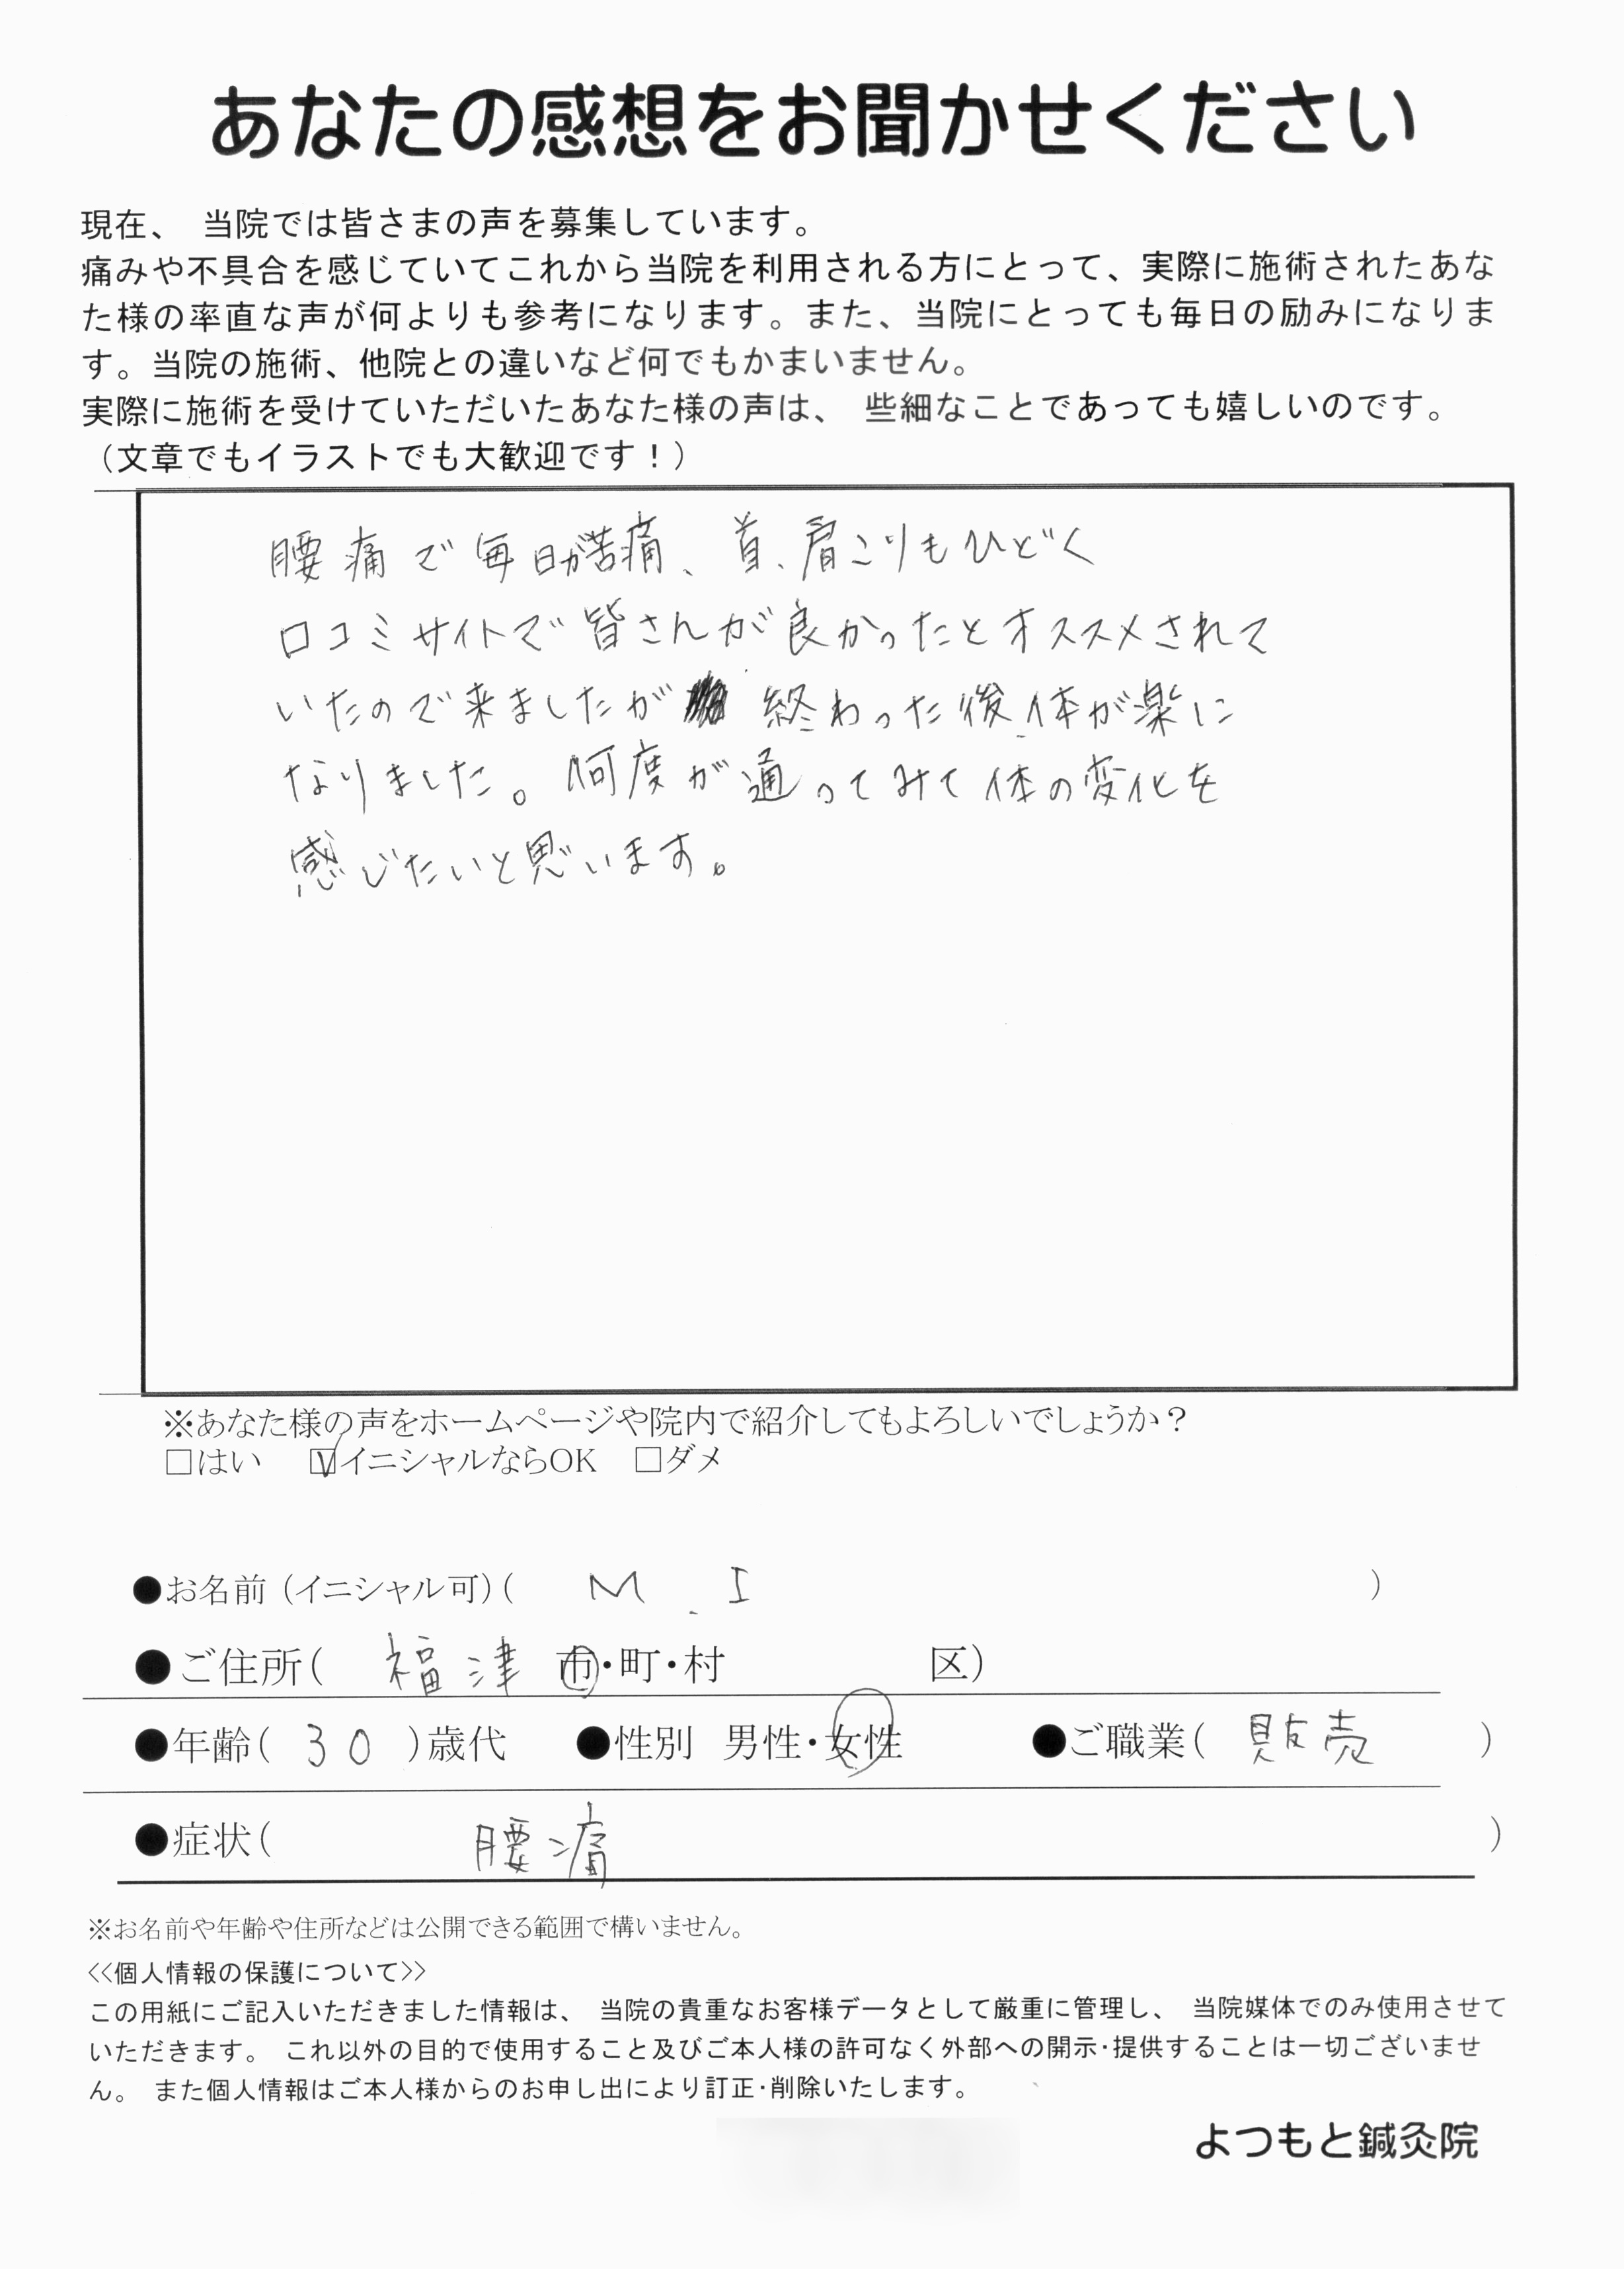 あなたの感想をお聞かせください
現在、 当院では皆さまの声を募集しています。
痛みや不具合を感じていてこれから当院を利用される方にとって、実際に施術されたあな
た様の率直な声が何よりも参考になります。また、当院にとっても毎日の励みになりま
す。当院の施術、他院との違いなど何でもかまいません。
実際に施術を受けていただいたあなた様の声は、 些細なことであっても嬉しいのです。
（文章でもイラストでも大歓迎です！）
腰痛で毎日が苦痛、首、肩こりもひどく
口コミサイトで皆さんが良かったとオススメされて
いたので来ましたが 終わった後、体が楽に
なりました。何度が通ってみて体の変化を
感じたいと思います。
※あなた様の声をホームページや院内で紹介してもよろしいでしょうか？
□はい ☑イニシャルならOK □ダメ
●お名前（イニシャル可）( M . I )
●ご住所( 福津 市・町・村 区)
●年齢( 30 )歳代 ●性別 男性・女性 ●ご職業( 販売 )
●症状( 腰痛 )
※お名前や年齢や住所などは公開できる範囲で構いません。
<<個人情報の保護について>>
この用紙にご記入いただきました情報は、 当院の貴重なお客様データとして厳重に管理し、 当院媒体でのみ使用させて
いただきます。 これ以外の目的で使用すること及びご本人様の許可なく外部への開示・提供することは一切ございませ
ん。 また個人情報はご本人様からのお申し出により訂正・削除いたします。
よつもと鍼灸院